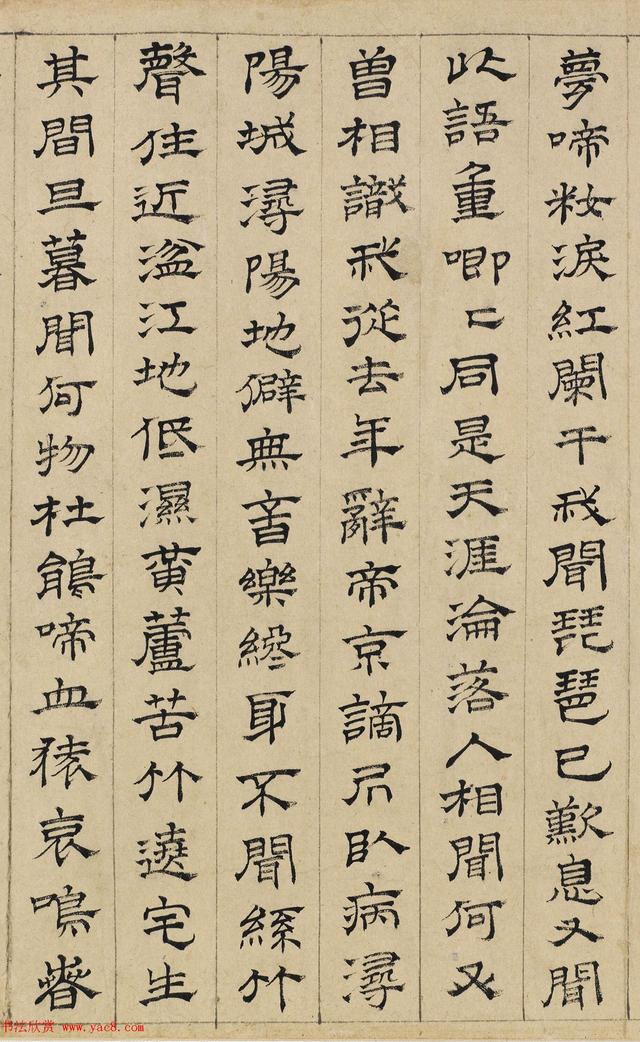 夢啼籹淚紅闌干我聞琵琶已歎息又聞
此語重唧〻同是天涯淪落人相聞何又
曾相識我從去年辭帝京謫居臥病潯
陽城潯陽地僻無音樂終耳不聞絲竹
聲住近湓江地低濕黃蘆苦竹遶宅生
其間旦暮聞何物杜鵑啼血猿哀鳴春
书法欣赏 www.yac8.com